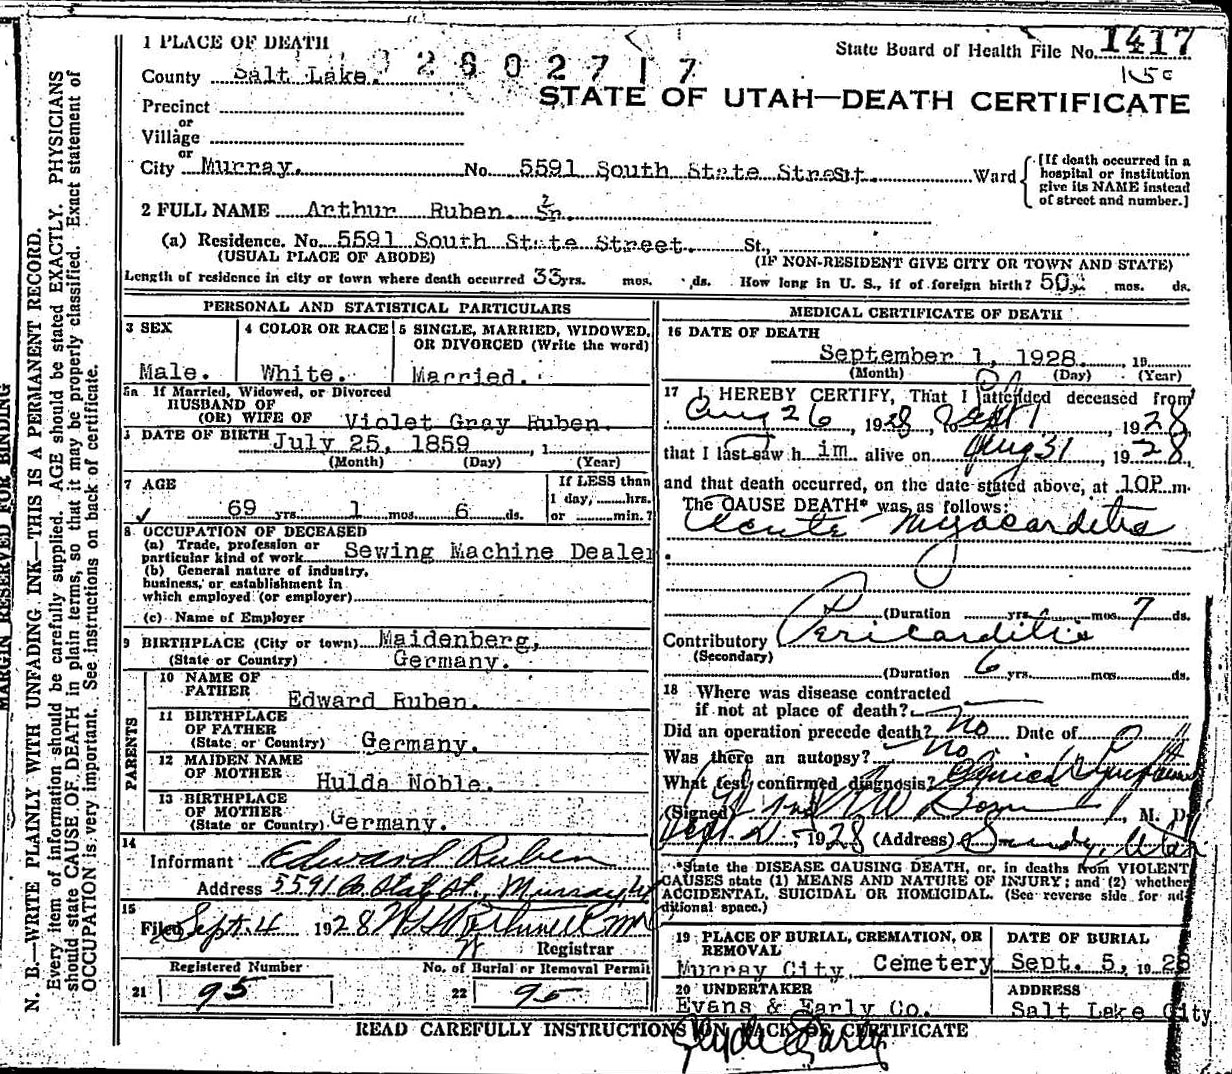 1 PLACE OF DEATH
State Board of Health File No. 1417
County Salt Lake. 2602717
STATE OF UTAH—DEATH CERTIFICATE
Precinct
or
Village
or
City Murray. No. 5591 South State Street. Ward
[If death occurred in a
hospital or institution
give its NAME instead
of street and number.]
2 FULL NAME Arthur Ruben Sr.
(a) Residence. No. 5591 South State Street. St.,
(USUAL PLACE OF ABODE) (IF NON-RESIDENT GIVE CITY OR TOWN AND STATE)
Length of residence in city or town where death occurred 33 yrs. mos. ds. How long in U. S., if of foreign birth? 50 yrs. mos. ds.
PERSONAL AND STATISTICAL PARTICULARS
3 SEX
Male.
4 COLOR OR RACE
White.
5 SINGLE, MARRIED, WIDOWED,
OR DIVORCED (Write the word)
Married.
5a If Married, Widowed, or Divorced
HUSBAND OF
(OR) WIFE OF Violet Gray Ruben.
DATE OF BIRTH July 25, 1859, 1
(Month) (Day) (Year)
7 AGE
69 yrs. 1 mos. 6 ds.
If LESS than
1 day, hrs.
or min.?
8 OCCUPATION OF DECEASED
(a) Trade, profession or
particular kind of work Sewing Machine Dealer
(b) General nature of industry,
business, or establishment in
which employed (or employer)
(c) Name of Employer
9 BIRTHPLACE (City or town) Maidenberg,
(State or Country) Germany.
PARENTS
10 NAME OF
FATHER Edward Ruben.
11 BIRTHPLACE
OF FATHER
(State or Country) Germany.
12 MAIDEN NAME
OF MOTHER Hulda Noble.
13 BIRTHPLACE
OF MOTHER
(State or Country) Germany.
14
Informant Edward Ruben
Address 5591 So. State St., Murray, Ut
15
Filed Sept. 4 1928
Registrar
Registered Number
21 95
No. of Burial or Removal Permit
22 95
MEDICAL CERTIFICATE OF DEATH
16 DATE OF DEATH
September 1, 1928. , 19
(Month) (Day) (Year)
17 I HEREBY CERTIFY, That I attended deceased from
Aug 26, 1928, to Sept 1, 1928,
that I last saw him alive on Aug 31, 1928,
and that death occurred, on the date stated above, at 10P. m.
The CAUSE DEATH* was as follows:
Acute Myocarditis
(Duration yrs. mos. 7 ds.
Contributory Pericarditis
(Secondary)
(Duration 6 yrs. mos. ds.
18 Where was disease contracted
if not at place of death?
Did an operation precede death? No Date of
Was there an autopsy? No
What test confirmed diagnosis? Clinical Symptoms
(Signed) M. D.
Sept. 2, 1928 (Address) Sandy, Utah
*State the DISEASE CAUSING DEATH, or, in deaths from VIOLENT
CAUSES state (1) MEANS AND NATURE OF INJURY; and (2) whether
ACCIDENTAL, SUICIDAL OR HOMICIDAL. (See reverse side for ad-
ditional space.)
19 PLACE OF BURIAL, CREMATION, OR
REMOVAL
Murray City. Cemetery
DATE OF BURIAL
Sept. 5, 1928
20 UNDERTAKER
Evans & Early Co.
ADDRESS
Salt Lake City
READ CAREFULLY INSTRUCTIONS ON BACK OF CERTIFICATE
Clyde Early
MARGIN RESERVED FOR BINDING
N. B.—WRITE PLAINLY WITH UNFADING INK—THIS IS A PERMANENT RECORD.
Every item of information should be carefully supplied. AGE should be stated EXACTLY. PHYSICIANS
should state CAUSE OF DEATH in plain terms, so that it may be properly classified. Exact statement of
OCCUPATION is very important. See instructions on back of certificate.